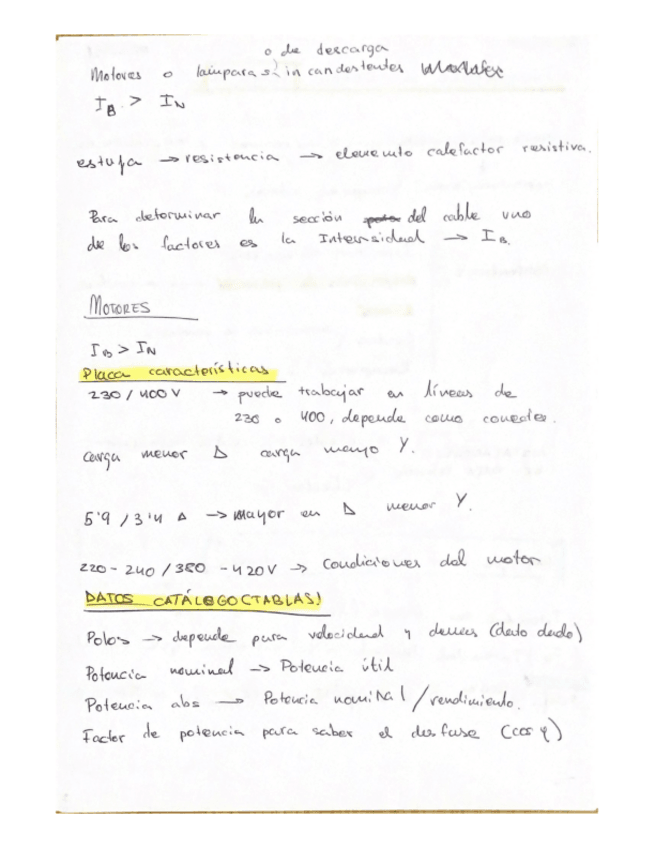 o de descarga
Motores o lámparas incandescentes
I_B > I_N
estufa → resistencia → elemento calefactor resistiva.
Para determinar la sección del cable uno
de los factores es la Intensidad → I_B.
MOTORES
I_B > I_N
Placa características
230 / 400 V → puede trabajar en líneas de
230 o 400, depende como conectes.
carga menor Δ carga mayo Y.
5'9 / 3'4 Δ → Mayor en Δ menor Y.
220 - 240 / 380 - 420 V → Condiciones del motor
DATOS CATÁLOGO (TABLAS)
Polos → depende para velocidad y demás (dato dado)
Potencia nominal → Potencia útil
Potencia abs → Potencia nominal / rendimiento.
Factor de potencia para saber el desfase (cos φ)